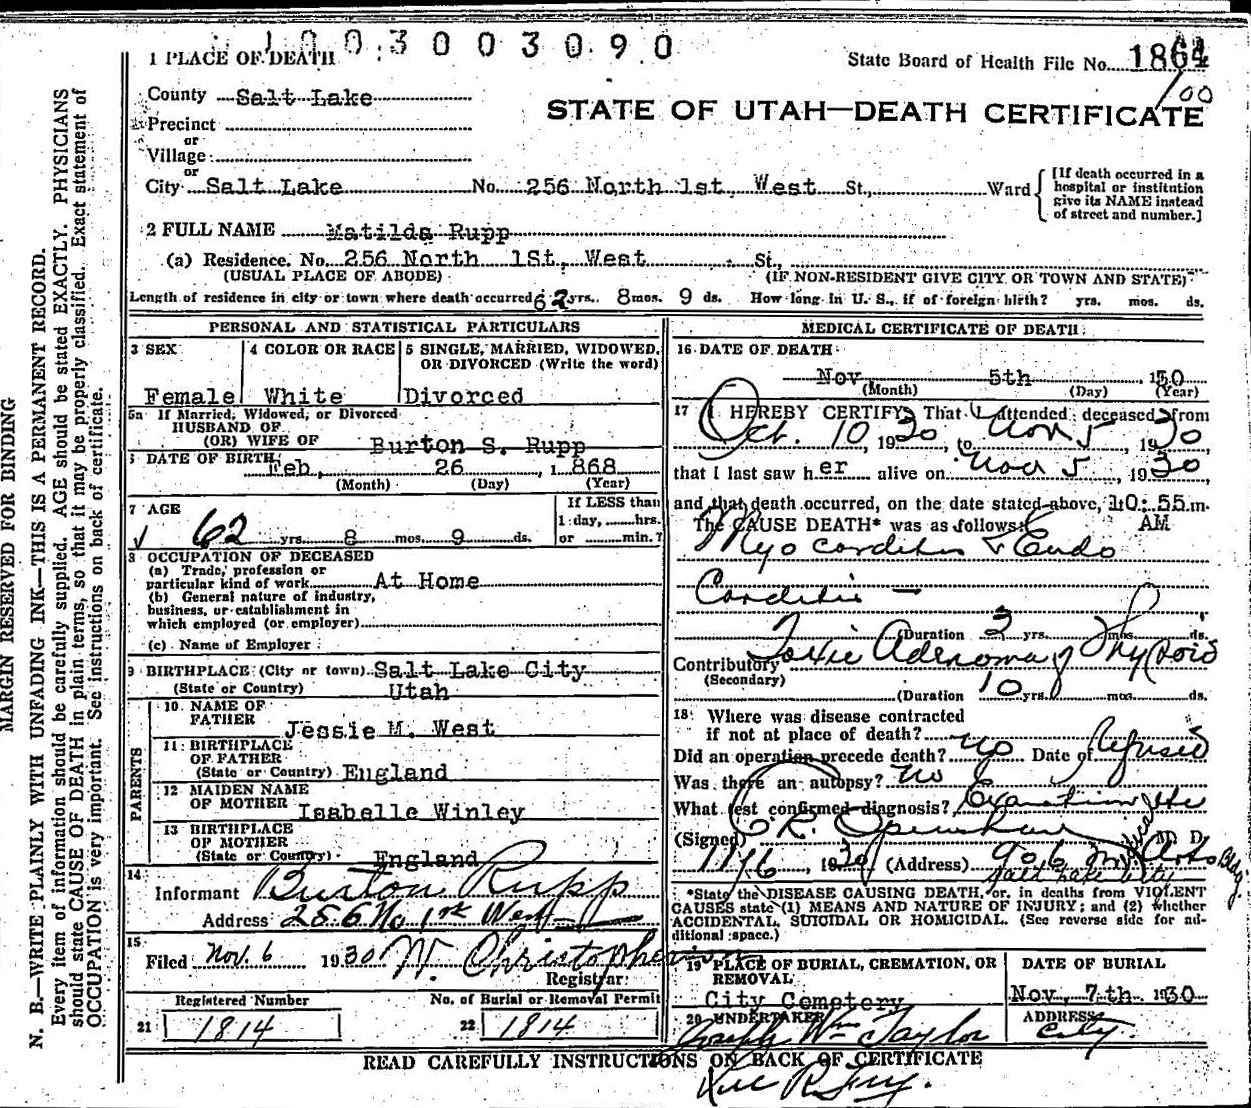 1003003090
1 PLACE OF DEATH
State Board of Health File No. 1864
100
County Salt Lake
STATE OF UTAH—DEATH CERTIFICATE
Precinct
or
Village
or
City Salt Lake No. 256 North 1st, West St., Ward
[If death occurred in a
hospital or institution
give its NAME instead
of street and number.]
2 FULL NAME Matilda Rupp
(a) Residence. No. 256 North 1St, West St.,
(USUAL PLACE OF ABODE) (IF NON-RESIDENT GIVE CITY OR TOWN AND STATE)
Length of residence in city or town where death occurred 62 yrs. 8 mos. 9 ds. How long in U. S., if of foreign birth? yrs. mos. ds.
PERSONAL AND STATISTICAL PARTICULARS
3 SEX
Female
4 COLOR OR RACE
White
5 SINGLE, MARRIED, WIDOWED,
OR DIVORCED (Write the word)
Divorced
5a If Married, Widowed, or Divorced
HUSBAND OF
(OR) WIFE OF Burton S. Rupp
6 DATE OF BIRTH
Feb, 26, 1868
(Month) (Day) (Year)
7 AGE
62 yrs. 8 mos. 9 ds.
If LESS than
1 day, hrs.
or min.?
8 OCCUPATION OF DECEASED
(a) Trade, profession or
particular kind of work At Home
(b) General nature of industry,
business, or establishment in
which employed (or employer)
(c) Name of Employer
9 BIRTHPLACE (City or town) Salt Lake City
(State or Country) Utah
PARENTS
10 NAME OF
FATHER Jessie M. West
11 BIRTHPLACE
OF FATHER
(State or Country) England
12 MAIDEN NAME
OF MOTHER Isabelle Winley
13 BIRTHPLACE
OF MOTHER
(State or Country) England
14
Informant Burton Rupp
Address 256 No 1st West
15
Filed Nov. 6 1930 W. Christopherson
Registrar
Registered Number
21 1814
No. of Burial or Removal Permit
22 1814
MEDICAL CERTIFICATE OF DEATH
16 DATE OF DEATH
Nov 5th, 1930
(Month) (Day) (Year)
17 I HEREBY CERTIFY, That I attended deceased from
Oct. 10, 1930, to Nov 5, 1930
that I last saw her alive on Nov 5, 1930
and that death occurred, on the date stated above, 10:55 m.
The CAUSE DEATH* was as follows: AM
Myocarditis & Endo
Carditis —
(Duration 2 yrs. mos. ds.
Contributory Toxic Adenoma of Thyroid
(Secondary)
(Duration 10 yrs. mos. ds.
18 Where was disease contracted
if not at place of death?
Did an operation precede death? no Date of Refused
Was there an autopsy? no
What test confirmed diagnosis? Examination etc
(Signed) Openshaw M. D.
11/6, 1930 (Address) 906 Medical Arts Bldg.
Salt Lake City
*State the DISEASE CAUSING DEATH, or, in deaths from VIOLENT
CAUSES state (1) MEANS AND NATURE OF INJURY; and (2) whether
ACCIDENTAL, SUICIDAL OR HOMICIDAL. (See reverse side for ad-
ditional space.)
19 PLACE OF BURIAL, CREMATION, OR
REMOVAL
City Cemetery
DATE OF BURIAL
Nov, 7th 1930
20 UNDERTAKER
Joseph Wm Taylor
ADDRESS
City.
READ CAREFULLY INSTRUCTIONS ON BACK OF CERTIFICATE
MARGIN RESERVED FOR BINDING
N. B.—WRITE PLAINLY WITH UNFADING INK—THIS IS A PERMANENT RECORD.
Every item of information should be carefully supplied. AGE should be stated EXACTLY. PHYSICIANS
should state CAUSE OF DEATH in plain terms, so that it may be properly classified. Exact statement of
OCCUPATION is very important. See instructions on back of certificate.